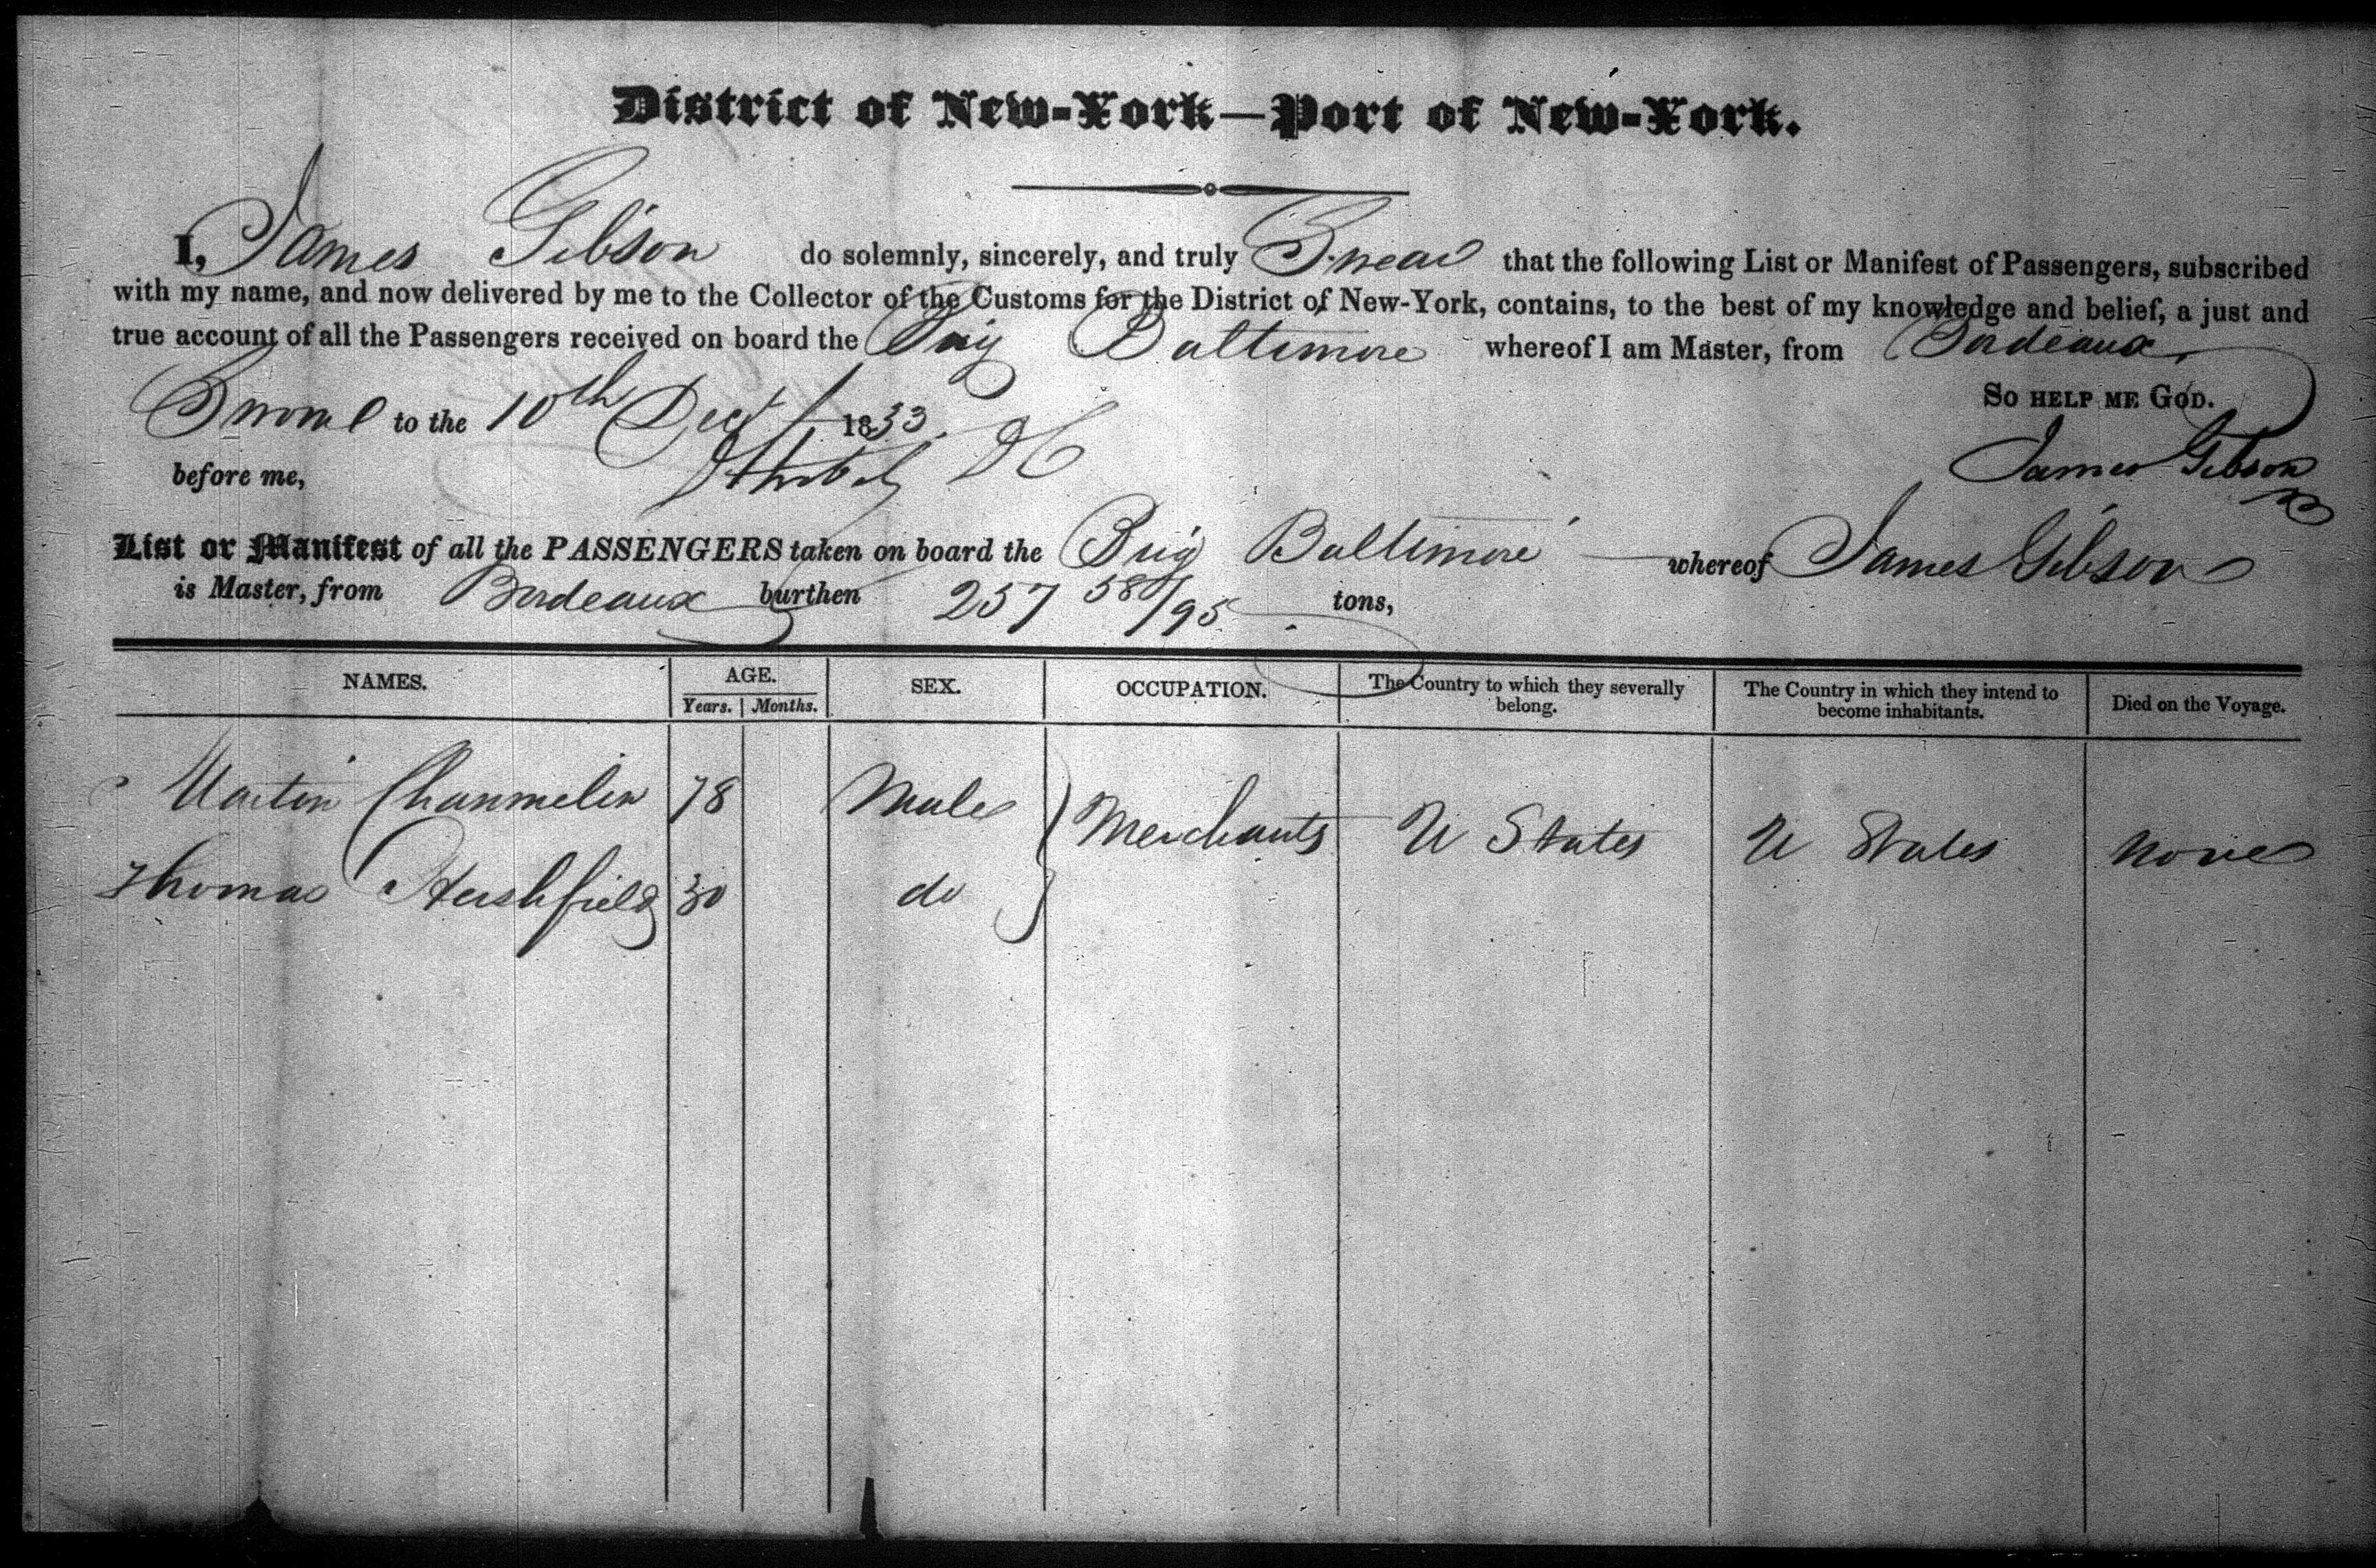 District of New-York—Port of New-York.
I, James Gibson do solemnly, sincerely, and truly Swear that the following List or Manifest of Passengers, subscribed
with my name, and now delivered by me to the Collector of the Customs for the District of New-York, contains, to the best of my knowledge and belief, a just and
true account of all the Passengers received on board the Brig Baltimore whereof I am Master, from Bordeaux
So help me God.
Sworn to the 10th Dec 1833
James Gibson
before me,
List or Manifest of all the PASSENGERS taken on board the Brig Baltimore whereof James Gibson
is Master, from Bordeaux burthen 257 58/95 tons,
NAMES. AGE. SEX. OCCUPATION. The Country to which they severally belong. The Country in which they intend to become inhabitants. Died on the Voyage.
Years. Months.
Martin 78 Male Merchants U States U States None
Thomas Hershfield 30 do